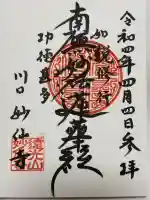 令和四年四月四日参拝
如説修行
南無妙法蓮華経
功徳甚多
川口 妙仙寺